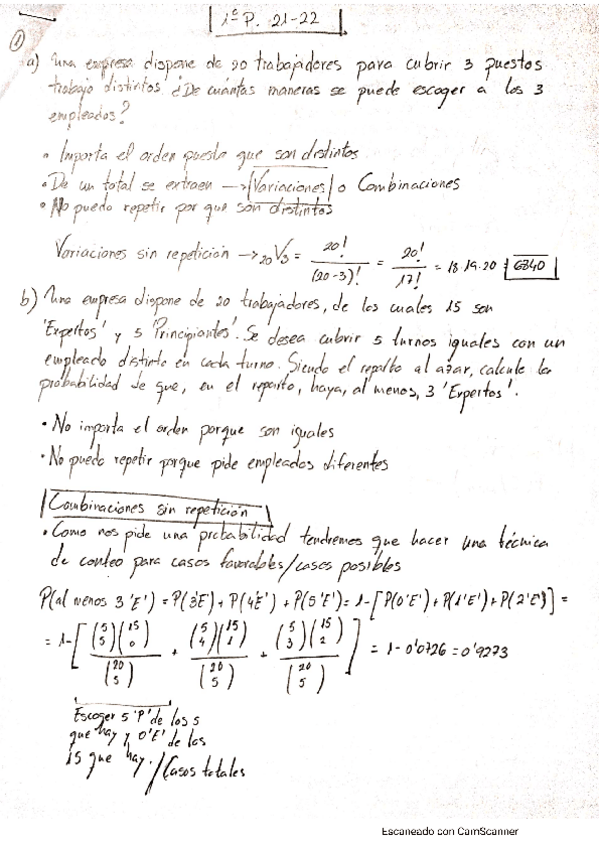 1º P. 21-22
①
a) Una empresa dispone de 20 trabajadores para cubrir 3 puestos
trabajo distintos ¿De cuántas maneras se puede escoger a los 3
empleados?
• Importa el orden puesto que son distintos
• De un total se extraen → Variaciones o Combinaciones
• No puedo repetir por que son distintos
Variaciones sin repetición → 20V3 = 20!/(20-3)! = 20!/17! = 18·19·20 = 6840
b) Una empresa dispone de 20 trabajadores, de los cuales 15 son
'Expertos' y 5 'Principiantes'. Se desea cubrir 5 turnos iguales con un
empleado distinto en cada turno. Siendo el reparto al azar, calcule la
probabilidad de que, en el reparto, haya, al menos, 3 'Expertos'.
• No importa el orden porque son iguales
• No puedo repetir porque pide empleados diferentes
Combinaciones sin repetición
• Como nos pide una probabilidad tendremos que hacer una técnica
de conteo para casos favorables/casos posibles
P(al menos 3 'E') = P(3'E') + P(4'E') + P(5'E') = 1-[P(0'E') + P(1'E') + P(2'E')] =
= 1-[(5 5)(15 0)/(20 5) + (5 4)(15 1)/(20 5) + (5 3)(15 2)/(20 5)] = 1-0'0726 = 0'9273
Escoger 5 'P' de los 5
que hay y 0'E' de los
15 que hay. / Casos totales
Escaneado con CamScanner